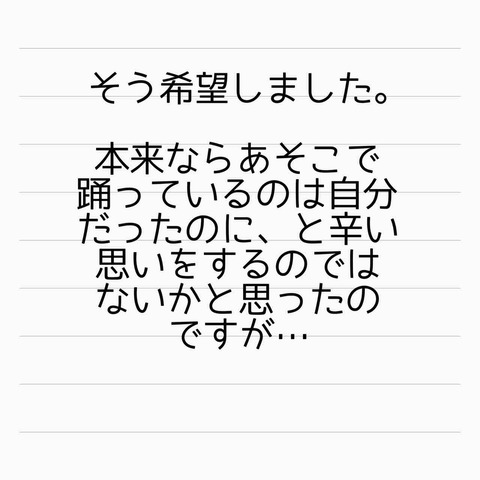 そう希望しました。
本来ならあそこで
踊っているのは自分
だったのに、と辛い
思いをするのでは
ないかと思ったの
ですが…